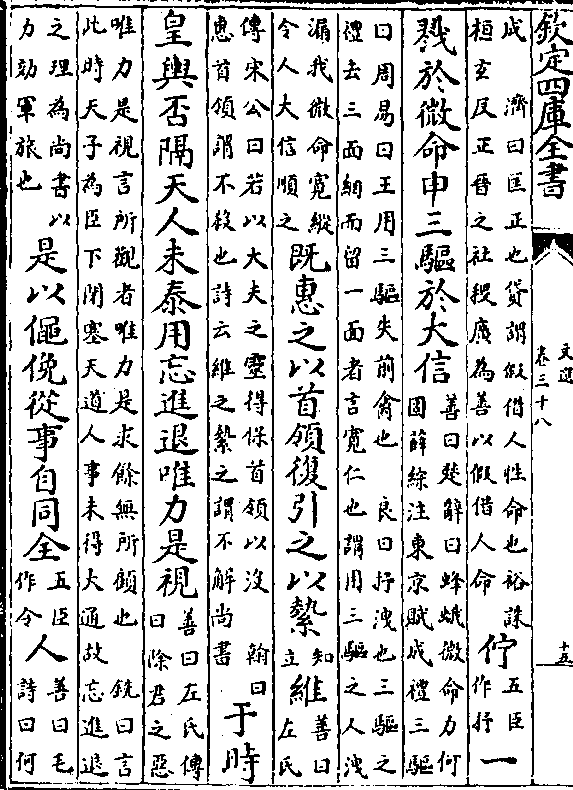 欽定四庫全書
文選
卷三十八
十五
成　濟曰匡正也貸謂假借人性命也裕誅
桓玄反正晉之社稷廣為善以假借人命
佇
五臣
作抒
一
戮於微命申三驅於大信
善曰楚辭曰蜂蛾微命力何
固薛綜注東京賦成禮三驅
曰周易曰王用三驅失前禽也　良曰抒洩也三驅之
禮去三面網而留一面者言寛仁也謂用三驅之人洩
漏我微命寛縱
令人大信順之
既惠之以首領復引之以縶
知
立
維
善曰
左氏
傳宋公曰若以大夫之靈得保首領以沒　翰曰
惠首領謂不殺也詩云維之縶之謂不解尚書
于時
皇輿否隔天人未泰用忘進退唯力是視
善曰左氏傳
曰除君之惡
唯力是視言所觀者唯力是求餘無所顧也　銑曰言
此時天子為臣下閉塞天道人事未得大通故忘進退
之理為尚書以
力効軍旅也
是以僶俛從事自同全
五臣
作令
人
善曰毛
詩曰何